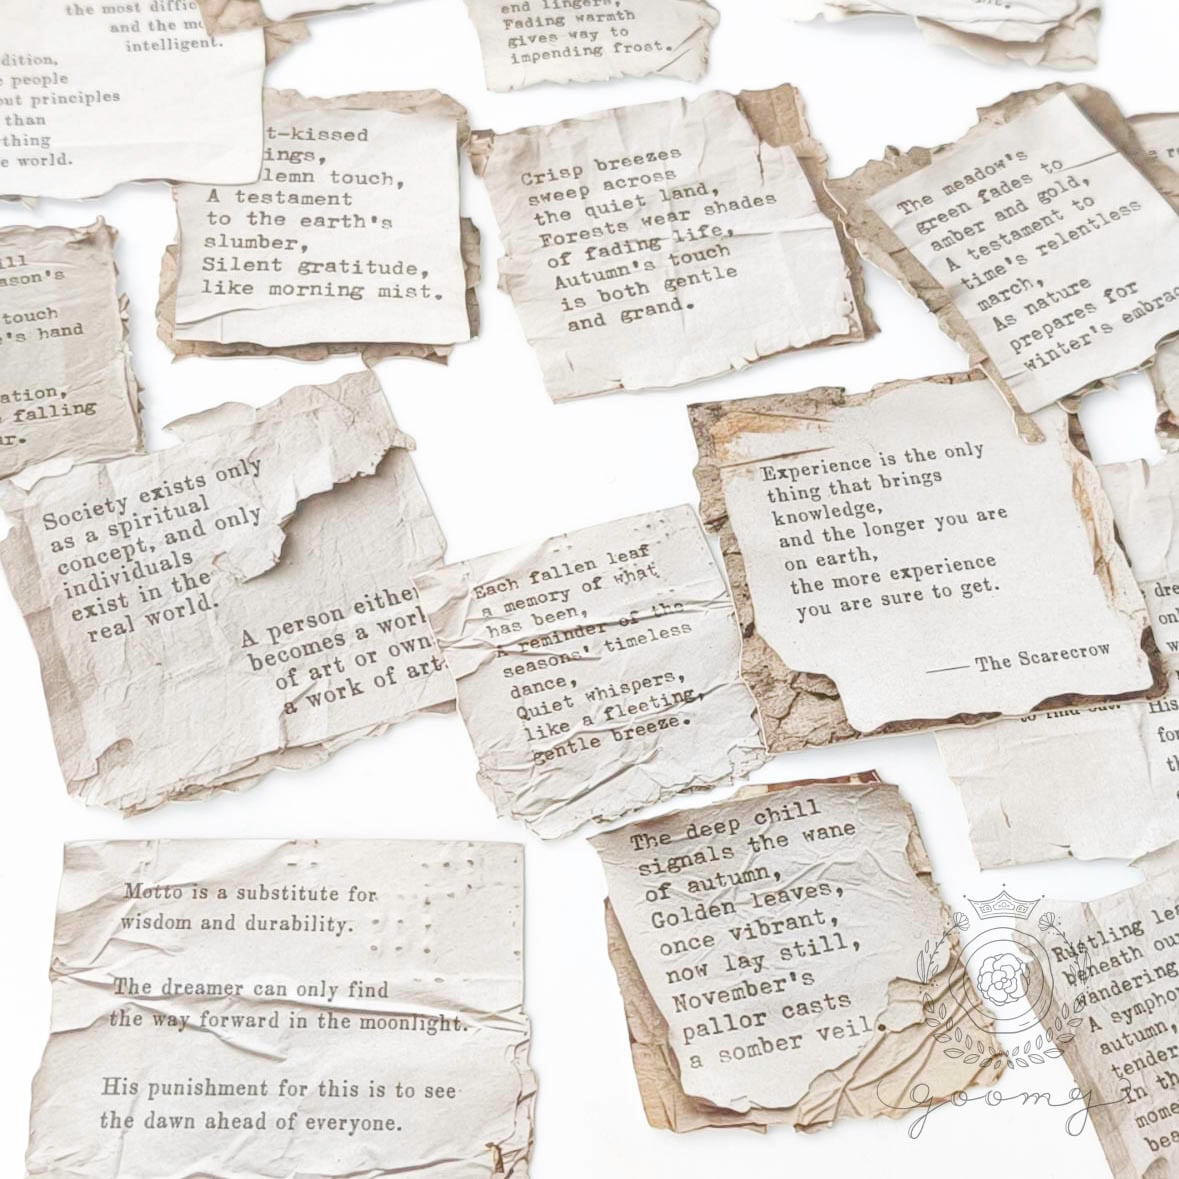 the most diffic
and the mo
intelligent.
dition,
people
out principles
than
thing
e world.
end lingers,
Fading warmth
gives way to
impending frost.
t-kissed
ings,
lemn touch,
A testament
to the earth's
slumber,
Silent gratitude,
like morning mist.
Crisp breezes
sweep across
the quiet land,
Forests wear shades
of fading life,
Autumn's touch
is both gentle
and grand.
The meadow's
green fades to
amber and gold,
A testament to
time's relentless
march,
As nature
prepares for
winter's embrac
ill
ason's
touch
e's hand
ation,
falling
ar.
Society exists only
as a spiritual
concept, and only
individuals
exist in the
real world.
A person either
becomes a work
of art or own
a work of art.
Each fallen leaf
a memory of what
has been,
A reminder of the
seasons' timeless
dance,
Quiet whispers,
like a fleeting,
gentle breeze.
Experience is the only
thing that brings
knowledge,
and the longer you are
on earth,
the more experience
you are sure to get.
—— The Scarecrow
dre
onl
w
His
for
th
Motto is a substitute for
wisdom and durability.
The dreamer can only find
the way forward in the moonlight.
His punishment for this is to see
the dawn ahead of everyone.
The deep chill
signals the wane
of autumn,
Golden leaves,
once vibrant,
now lay still,
November's
pallor casts
a somber veil.
Rustling lea
beneath our
wandering
A sympho
autumn,
tender
In th
mome
bea
goomy